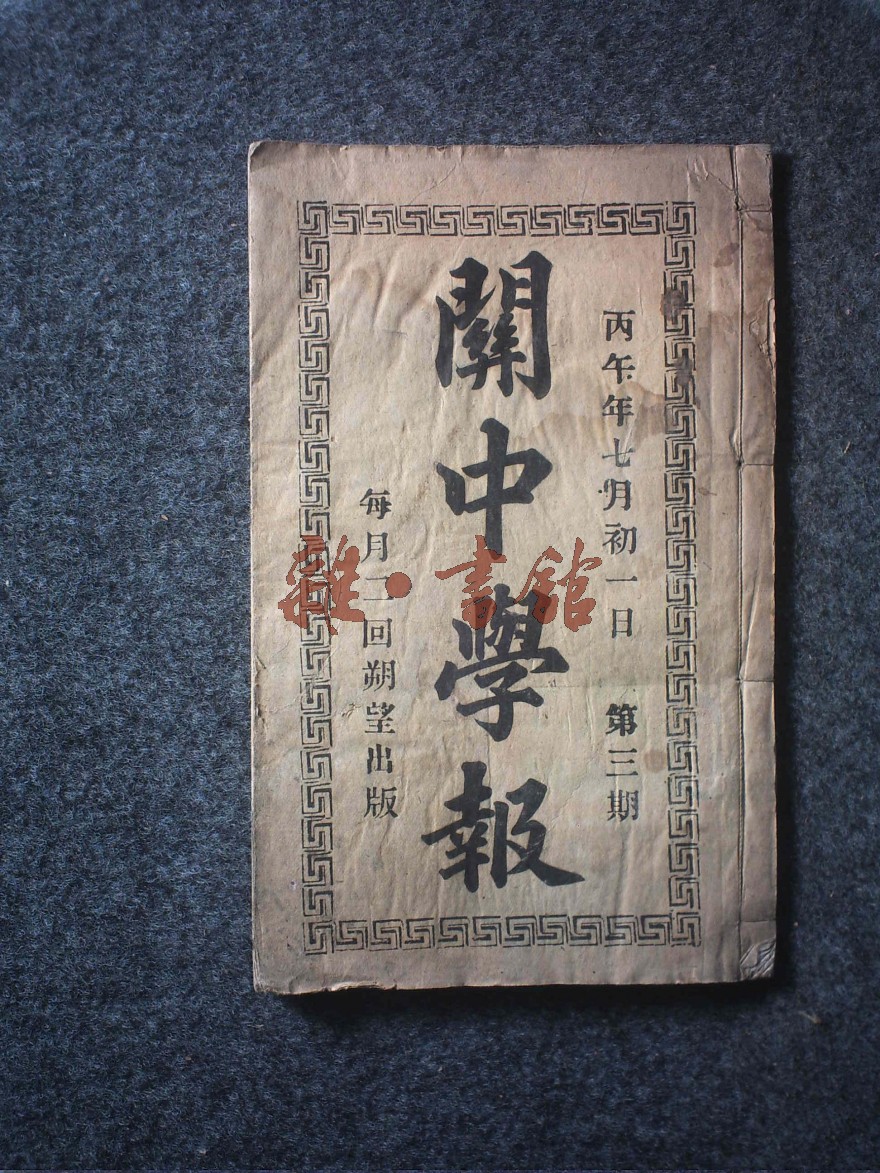 丙午年七月初一日 第三期
關中學報
每月二回朔望出版
雜·書館